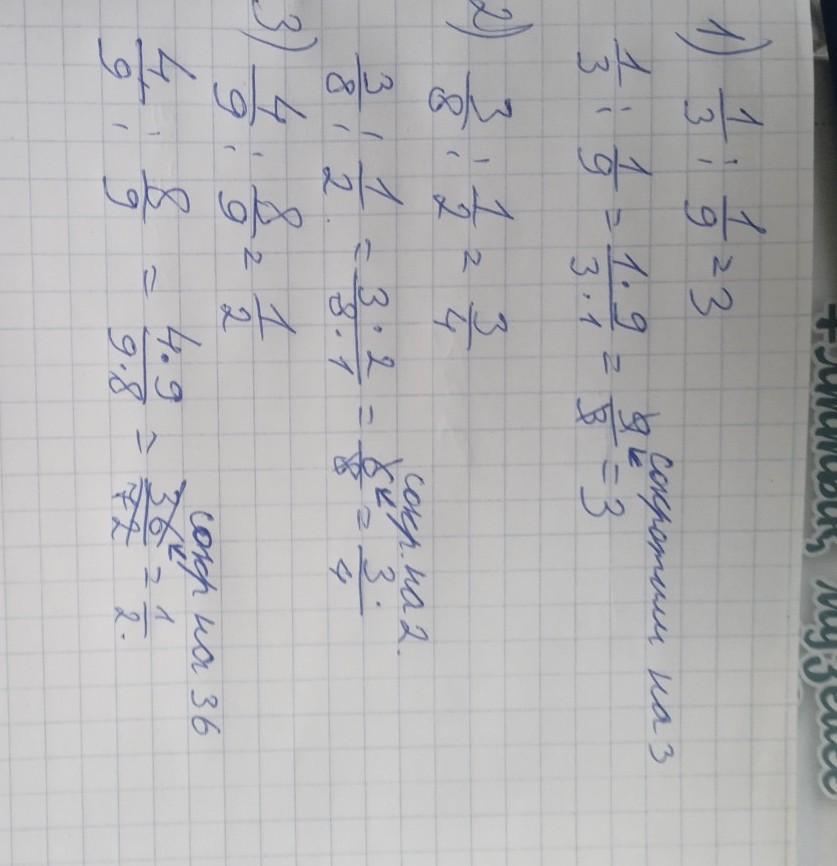 1) 1/3 : 1/9 = 3
1/3 : 1/9 = 1·9/3·1 = 9/3 = 3 сократим на 3
2) 3/8 : 1/2 = 3/4
3/8 : 1/2 = 3·2/8·1 = 6/8 = 3/4. сокр. на 2.
3) 4/9 : 8/9 = 1/2
4/9 : 8/9 = 4·9/9·8 = 36/72 = 1/2. сокр на 36